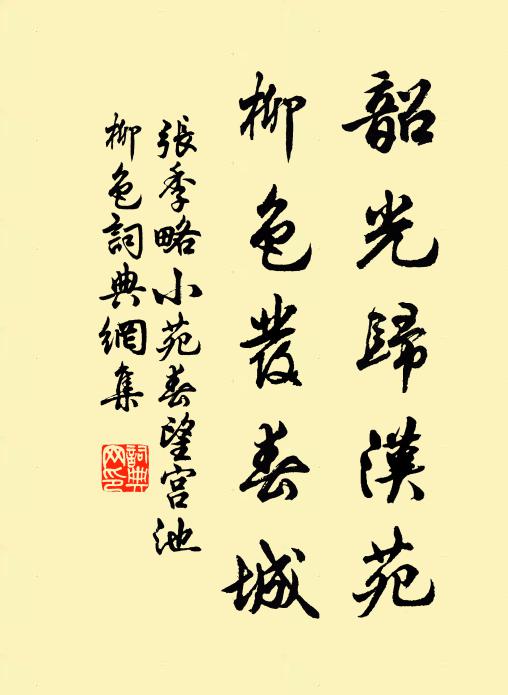 韶光歸漢苑
柳色發春城
張季略小苑春望宮池
柳色詞典網集
詞典网印